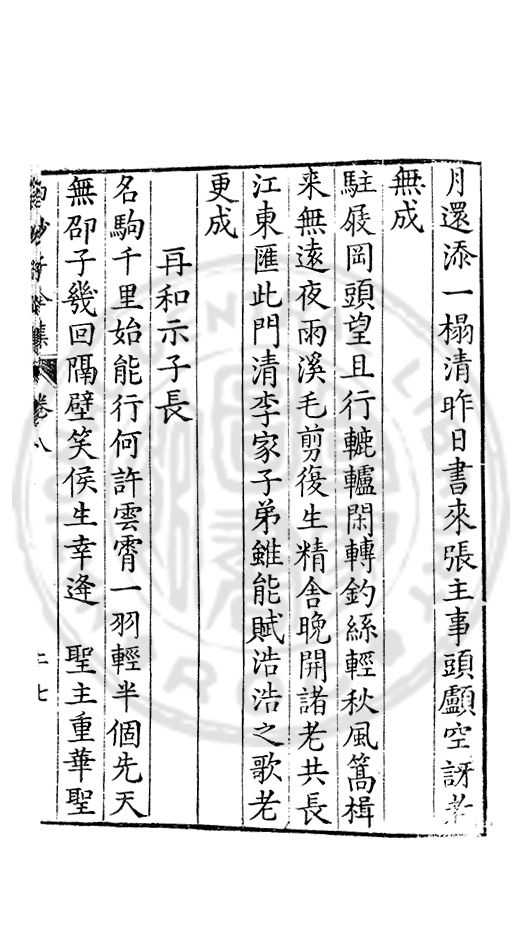 月還添一榻清昨日書來張主事頭顱空訝老
無成
駐屐岡頭望且行轆轤閑轉釣絲輕秋風篙楫
来無遠夜雨溪毛剪復生精舎晚開諸老共長
江東匯此門清李家子弟雖能賦浩浩之歌老
更成
再和示子長
名駒千里始能行何許雲霄一羽輕半個先天
無邵子幾回隔壁笑侯生幸逢　聖主重華聖
白沙子全集　卷八　二七